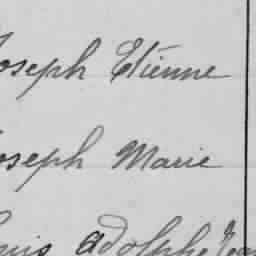 Joseph Etienne
Joseph Marie
Louis Adolphe Jean